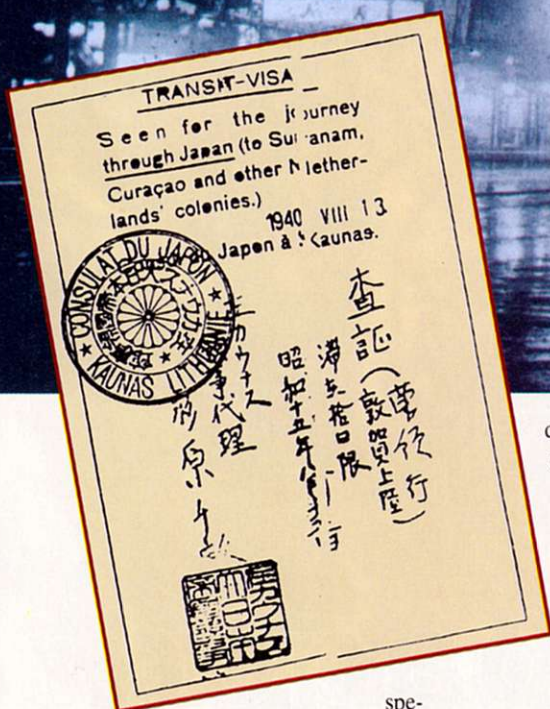 TRANSIT-VISA
Seen for the journey
through Japan (to Surianam,
Curaçao and other Nether-
lands' colonies.)
1940 VIII 13
Japon à Kaunas.
CONSULAT DU JAPON
KAUNAS LITHUANIE
査証
(敦賀上陸)
行
滞在拾日限
昭和十五年八月
カウナス
事代理
原千畝
spe-